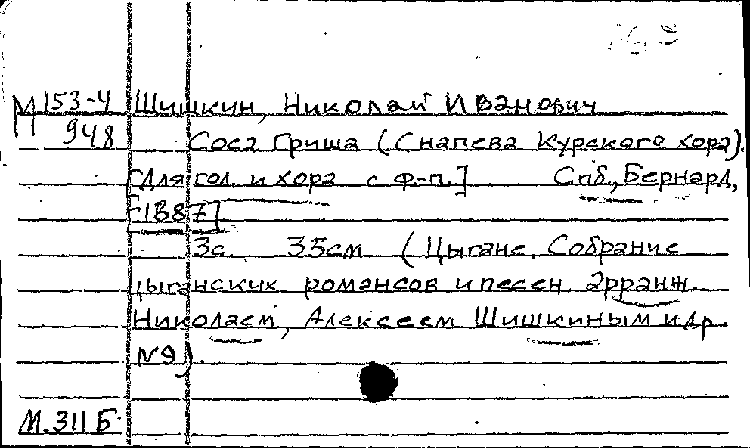 М 153-4 Шишкин, Николай Иванович
948 Соса Гриша (С напева Курского хора).
[Для гол. и хора с ф-п.] Спб., Бернард,
[1887]
3с. 35см (Цыгане. Собрание
цыганских романсов и песен аранж.
Николаем, Алексеем Шишкиным и др.
№9).
М.311Б